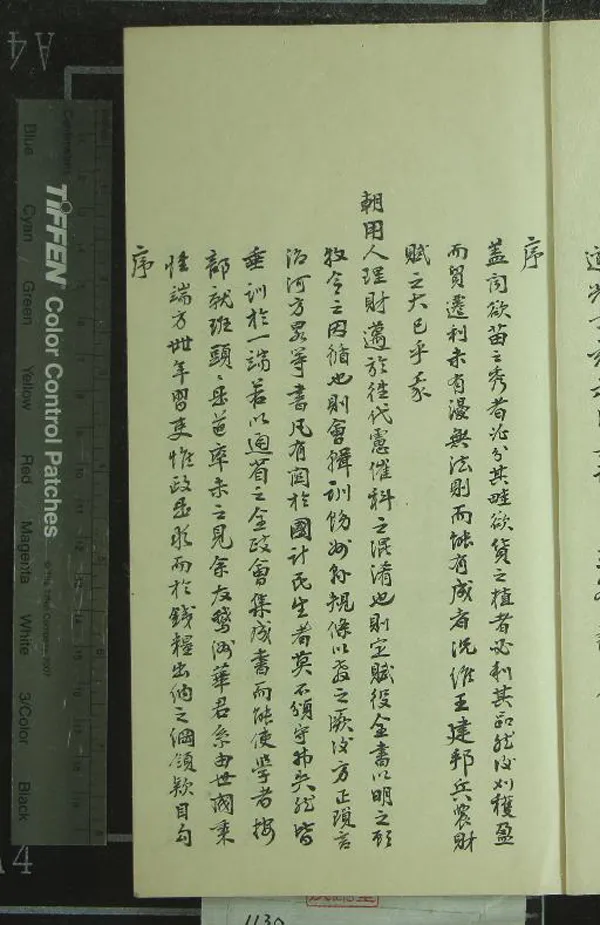 序
蓋聞欲苗之秀者必分其畦欲貨之植者必利其器然後刈穫盈
而貿遷利未有漫無法則而能有成者況維王建邦兵農財
賦之大已乎我
朝用人理財邁於往代慮催科之混淆也則定賦役全書以明之顧
牧令之因循也則會輯訓飭州縣規條以及之厥後方正瑣言
治河方畧等書凡有關於國計民生者莫不頒守遵矣然皆
垂訓於一端若以通省之全政會集成書而能使學者按
部就班頭頭是道率未之見余友鶩洲華君系由世閥秉
性端方卅年習吏惟政是求而於錢糧出納之綱領款目勾
序
TIFFEN Color Control Patches
Blue
Cyan
Green
Yellow
Red
Magenta
White
3/Color
Black
Centimetres
A4
1130